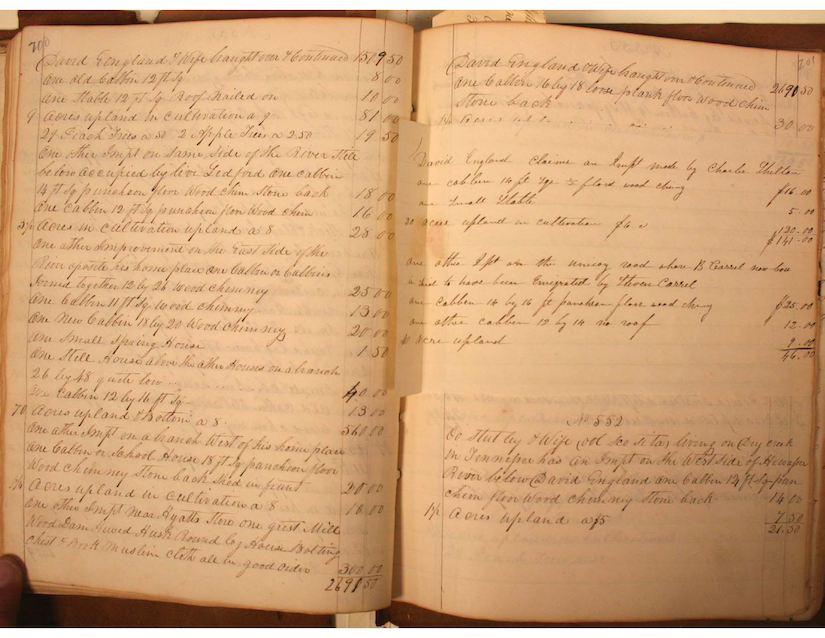 700
David England & Wife braught over & Continued 1509 50
One old Cabbin 12 ft Sq 8 00
One Stable 12 ft Sq Roof Nailed on 10 00
9 Acres upland in Cultivation a 9 81 00
29 Peach Trees a 50 2 Apple Trees a 2.50 19 50
One other Impt on Same Side of the River Still
below Occupied by Levi Ledford One cabbin
14 ft Sq puncheon floor Wood Chim Stone back 18 00
One Cabbin 12 ft Sq puncheon floor Wood Chim 16 00
3½ Acres in Cultivation upland a 8 28 00
One other Improvement on the East Side of the
River oposite his home place One Cabbin or Cabbins
Joined together 12 by 26 Wood Chimney 25 00
One Cabbin 11 ft Sq Wood Chimney 13 00
One New Cabbin 18 by 20 Wood Chimney 20 00
One Small Spring House 1 50
One Still House above the other Houses on a branch
26 by 48 quite low 40 00
One Cabbin 12 by 14 ft Sq 13 00
70 Acres upland & Bottom a 8 560 00
One other Impt on a branch West of his home place
One Cabbin or School House 18 ft Sq puncheon floor
Wood Chimney Stone back Shed in front 20 00
Acres upland in Cultivation a 8 18 00
One other Impt Near Hyatts Store one grist Mill
Wood Dam Husk Round Log House Bolting
Chest & Book Muslin Cloth all in good Order 300 00
2691 50
701
David England & Wife braught over & Continued 2691 50
One Cabbin 16 by 18 loose plank floor Wood Chim
Stone back 30 00
David England Claims an Impt made by Charle
one cabben 14 ft Sqr ½ flord wood chimy $16.00
one Small Stable 5.00
20 acres upland in cultivation $6.00 120.00
$141.00
one other Ipt on the road above B Carrel now
is Said to have been Emigrated by Carrel
one cabben 14 by 16 ft puncheon floor wood chimy $25.00
one other cabben 12 by 14 no roof 12.00
acre upland 9.00
46.00
No 552
& Wife living on Dry creek
in Tennessee has an Impt on the West Side of
River below David England One Cabbin 14 ft Sq pun
cheon floor Wood Chimney Stone back 14 00
1½ Acres upland a $5 7.50
21.50